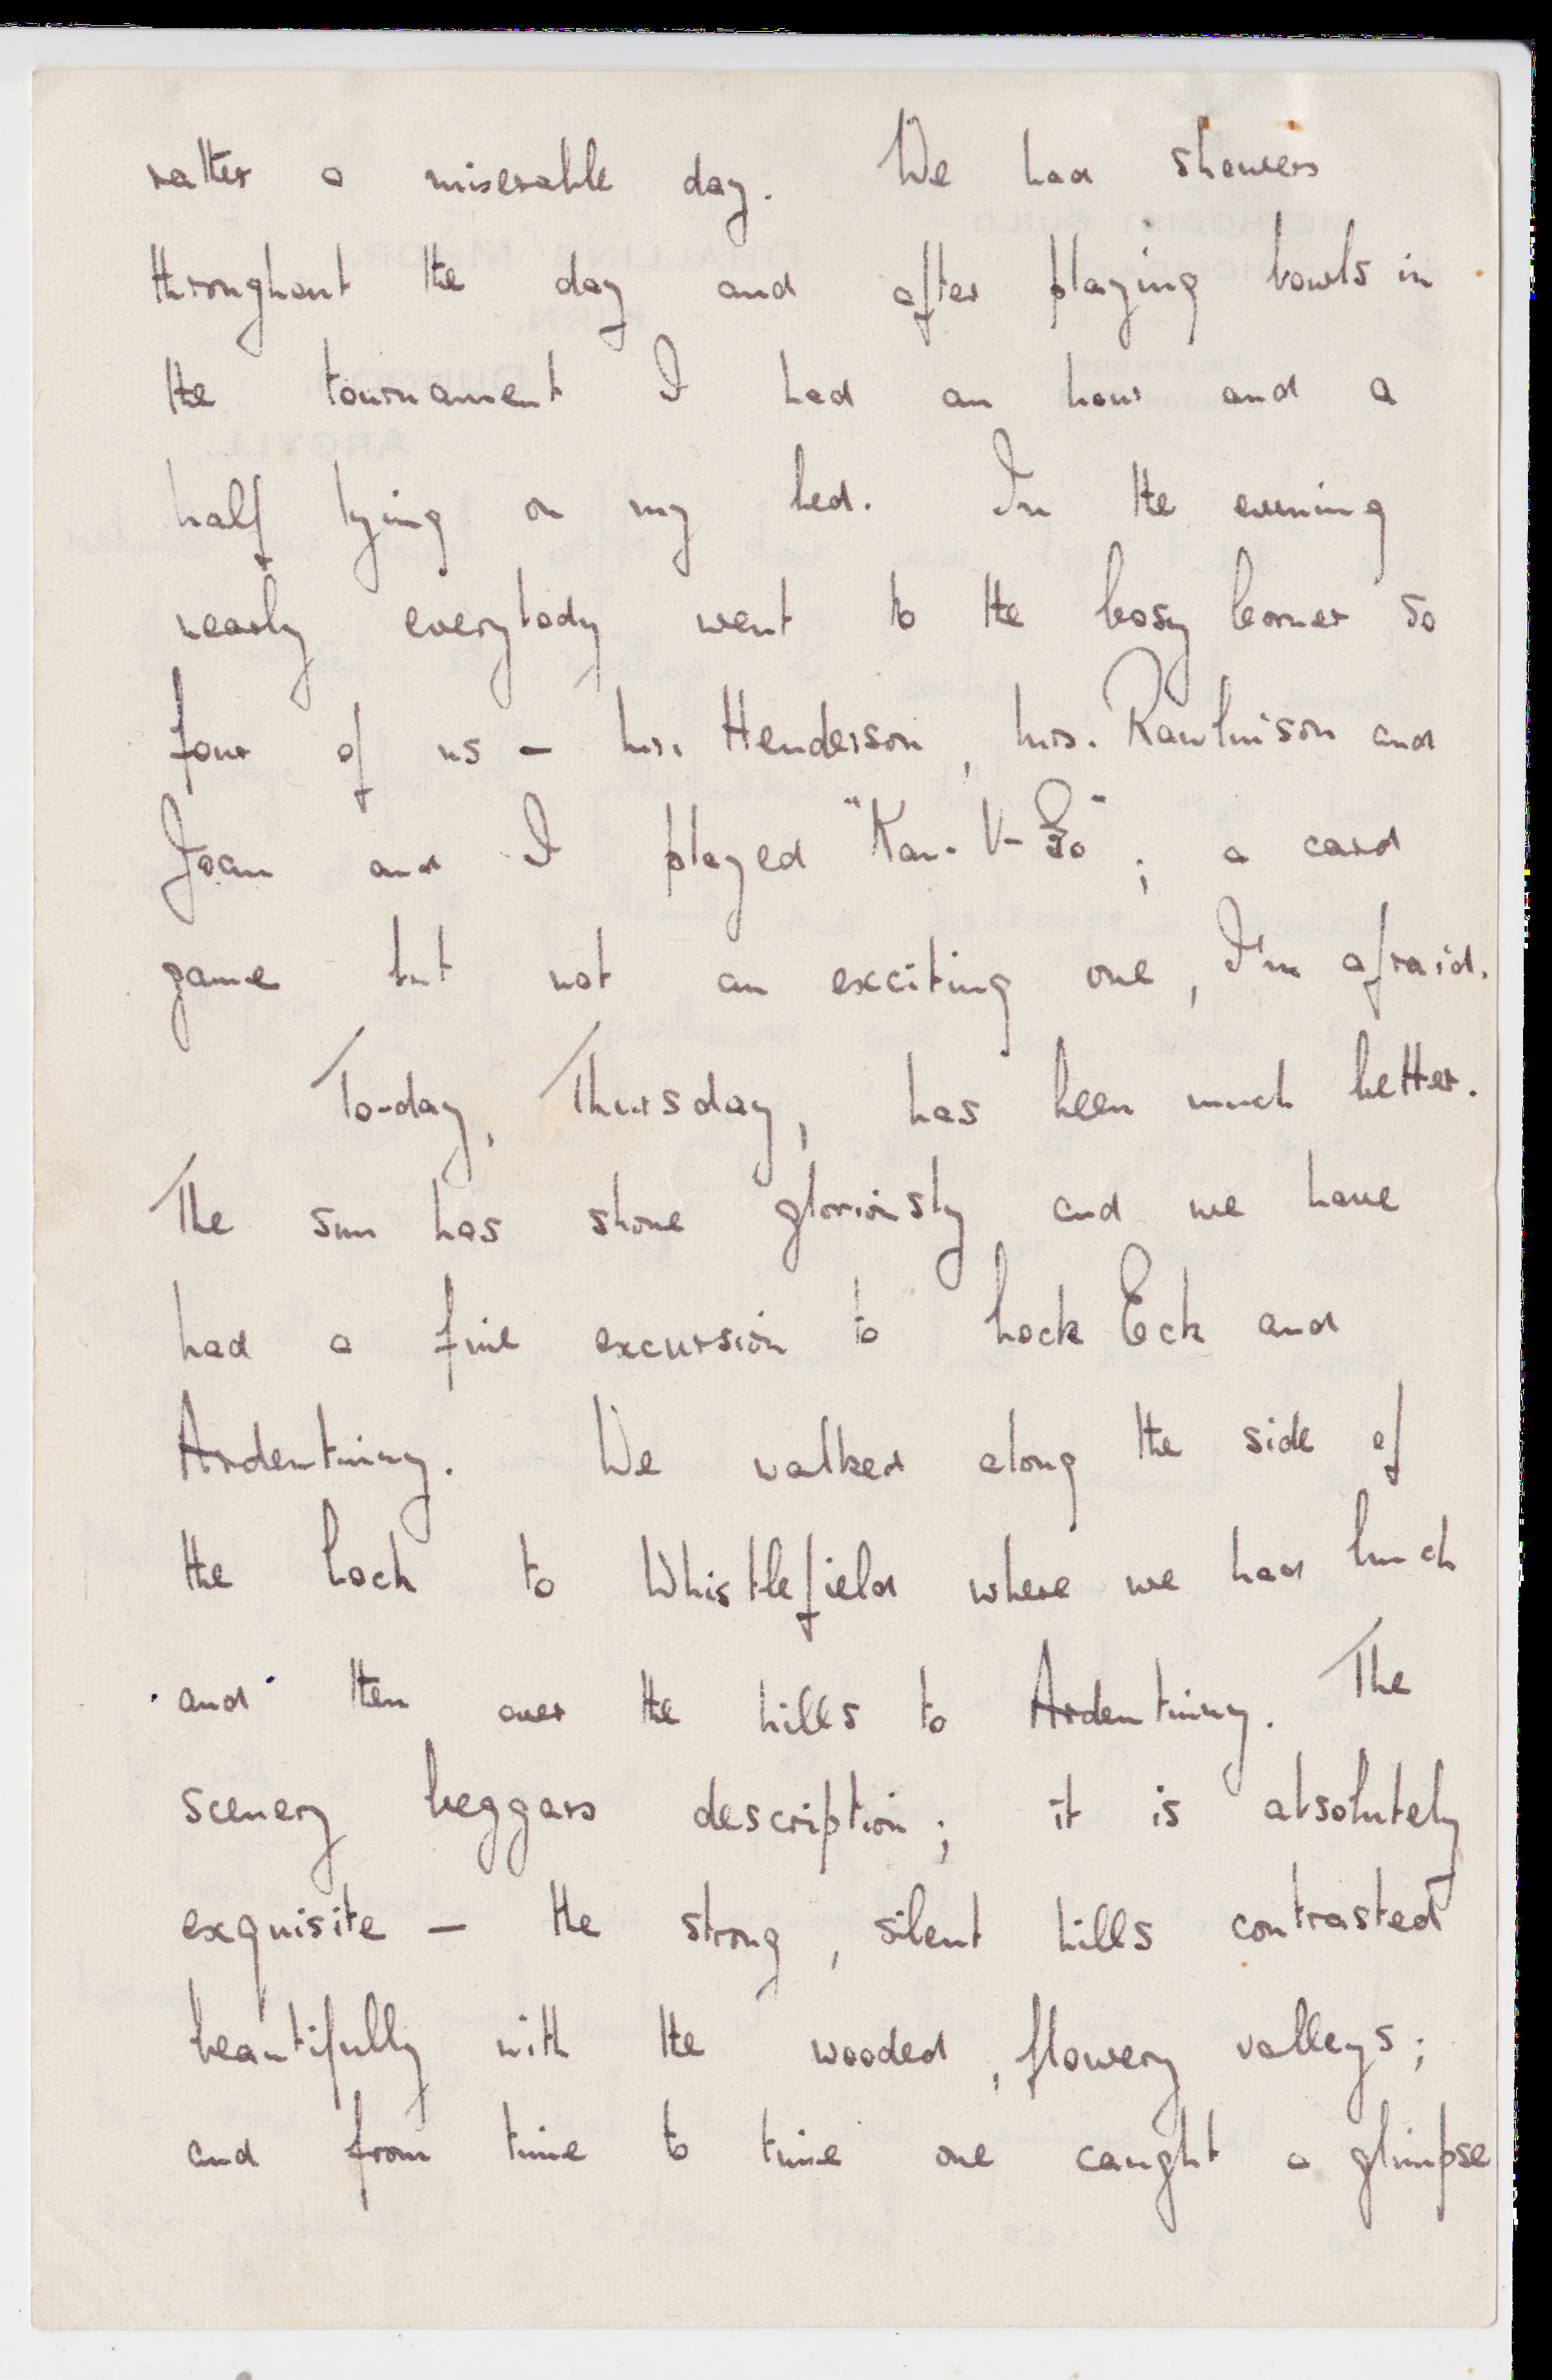 rather a miserable day. We had showers
throughout the day and after playing bowls in
the tournament I had an hour and a
half lying on my bed. In the evening
nearly everybody went to the Cosy Corner so
four of us - Mr. Henderson, Mrs. Rawlinson and
Joan and I played "Kan-U-Go"; a card
game but not an exciting one, I'm afraid.
To-day, Thursday, has been much better.
The sun has shone gloriously and we have
had a fine excursion to Loch Eck and
Ardentinny. We walked along the side of
the Loch to Whistlefield where we had lunch
and then over the hills to Ardentinny. The
scenery beggars description; it is absolutely
exquisite - the strong, silent hills contrasted
beautifully with the wooded, flowery valleys;
and from time to time one caught a glimpse